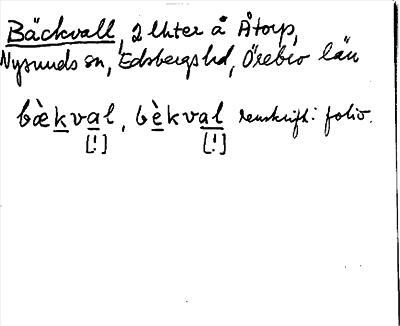 Bäckvall, 2 lhter å Åtorp,
Nysunds sn, Edsbergs hd, Örebro län
bæ̀kval, bèkval renskrift: folio.
[!] [!]